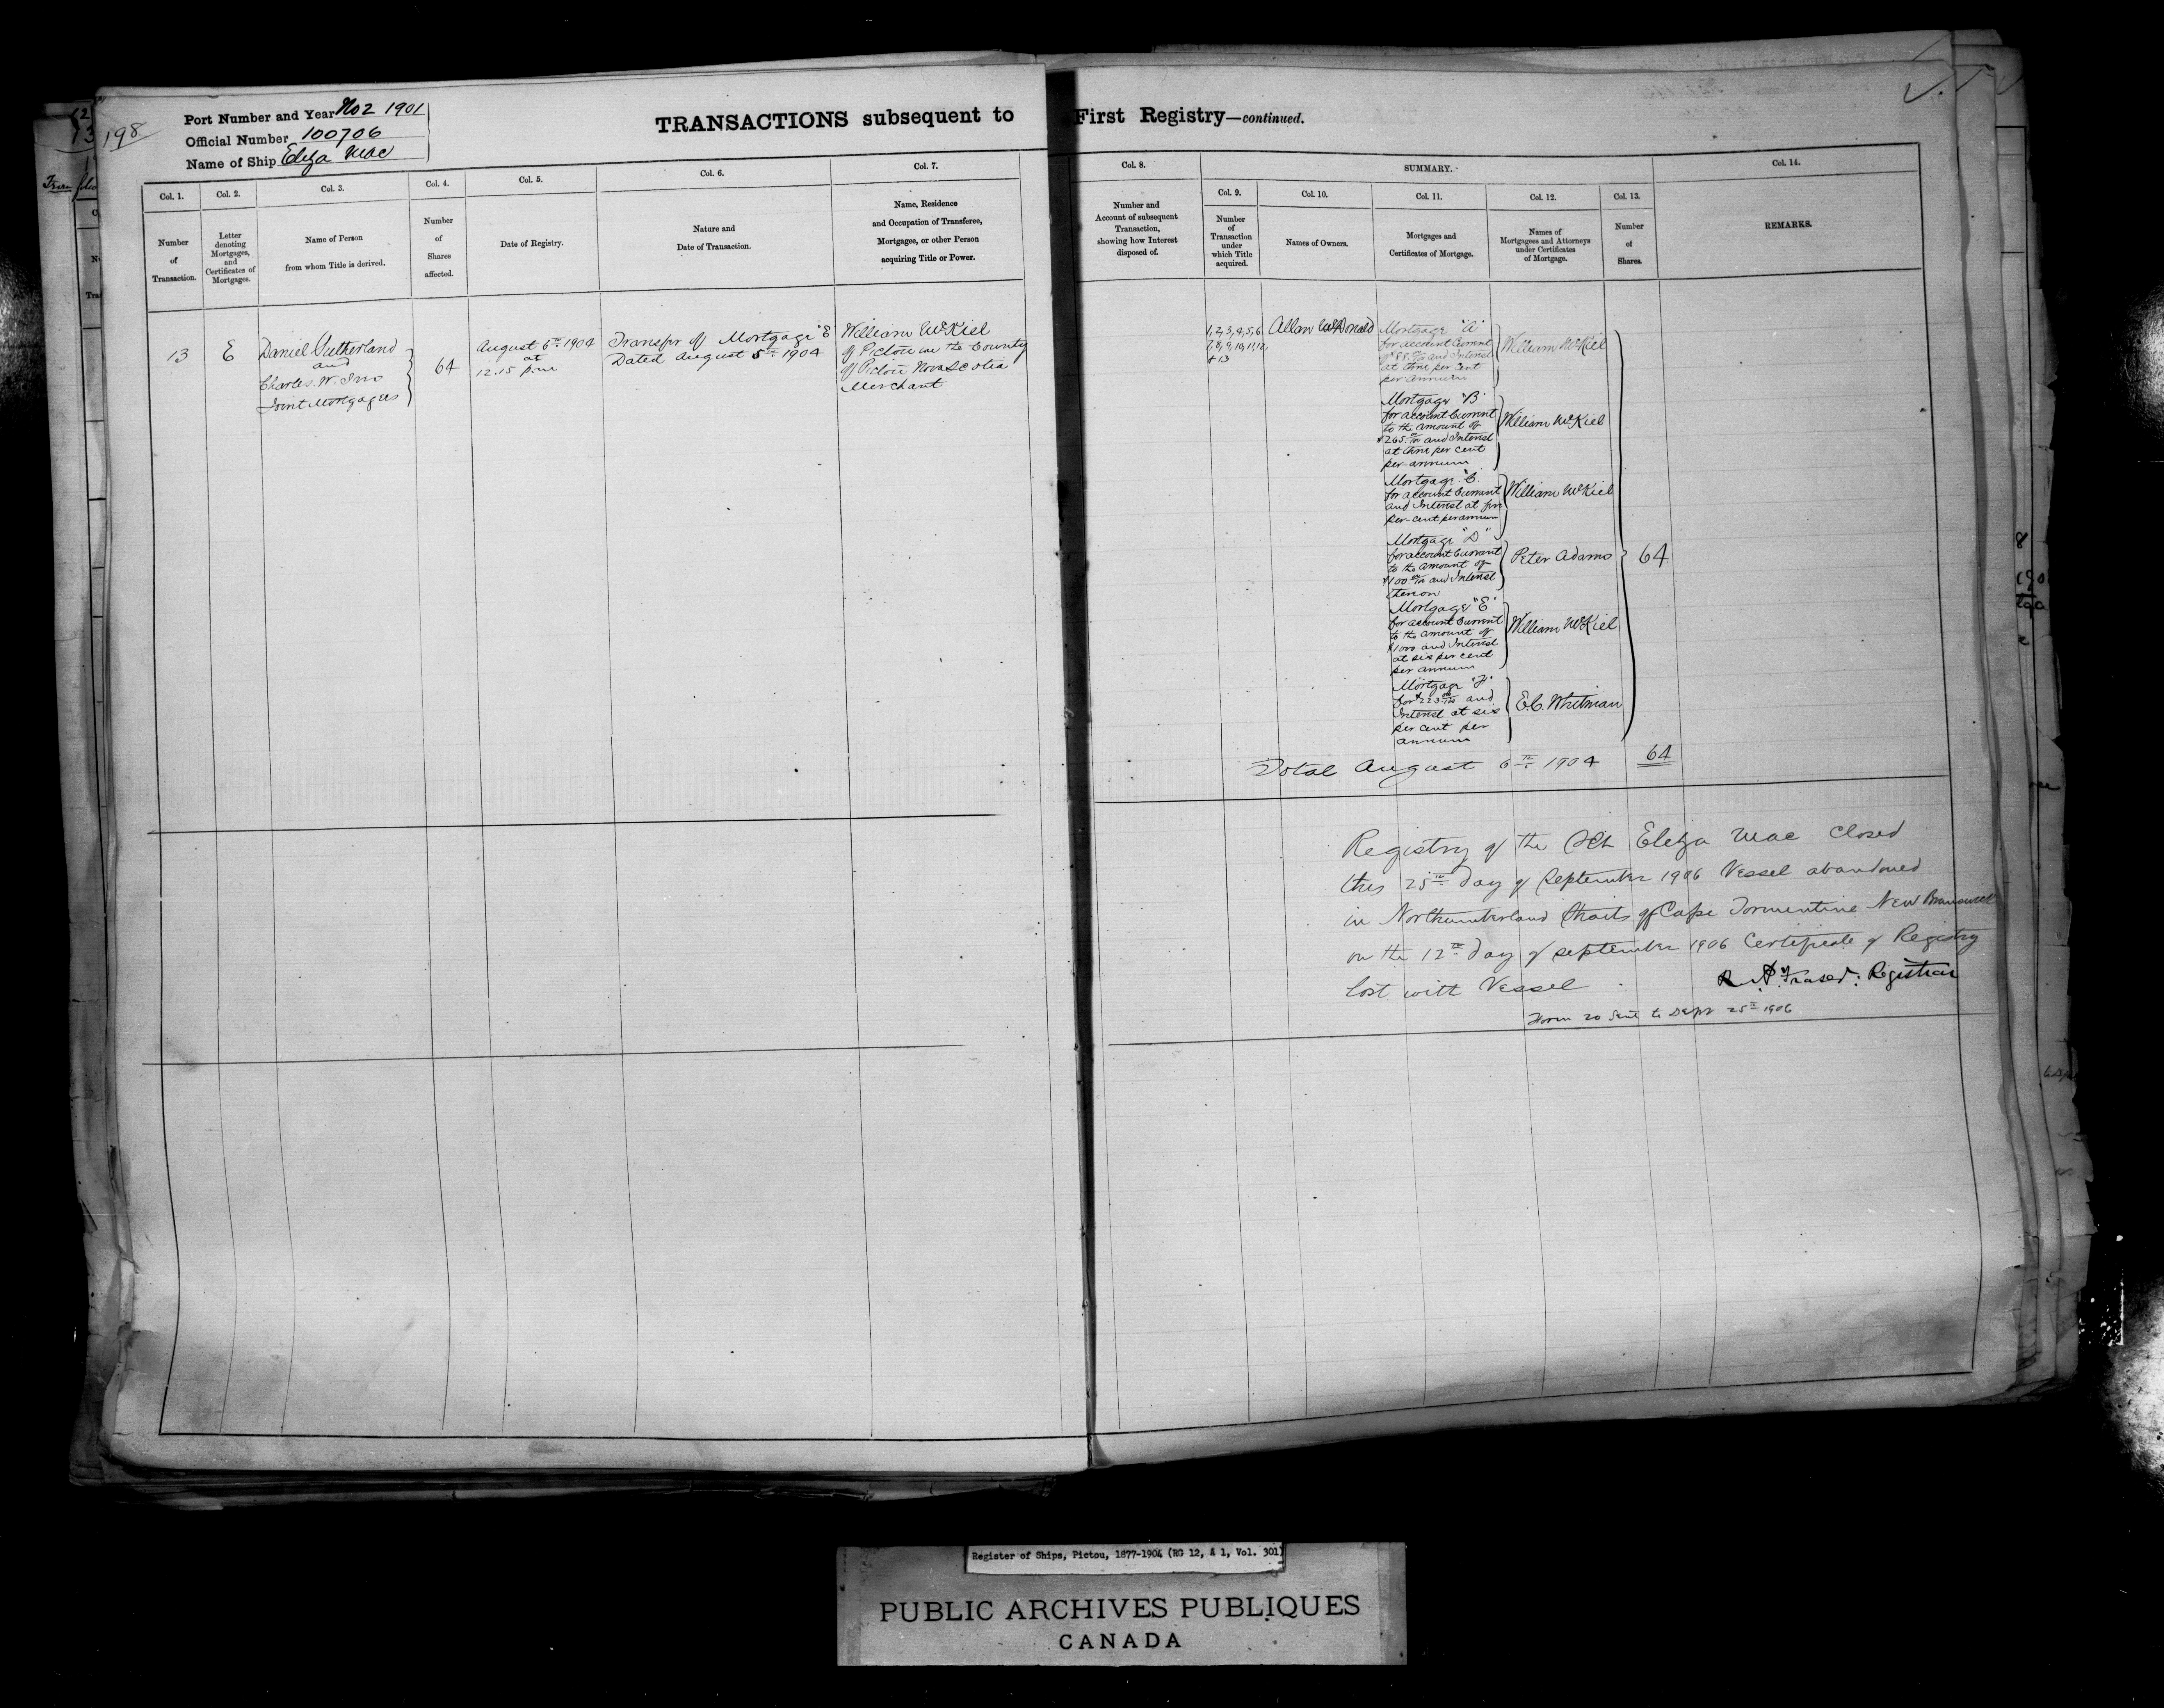 198
Port Number and Year No 2 1901
Official Number 100706
Name of Ship Eliza Mac
TRANSACTIONS subsequent to First Registry—continued.
Col. 1.
Number
of
Transaction.
Col. 2.
Letter
denoting
Mortgages,
and
Certificates of
Mortgages.
Col. 3.
Name of Person
from whom Title is derived.
Col. 4.
Number
of
Shares
affected.
Col. 5.
Date of Registry.
Col. 6.
Nature and
Date of Transaction.
Col. 7.
Name, Residence
and Occupation of Transferee,
Mortgagee, or other Person
acquiring Title or Power.
Col. 8.
Number and
Account of subsequent
Transaction,
showing how Interest
disposed of.
SUMMARY.
Col. 9.
Number
of
Transaction
under
which Title
acquired.
Col. 10.
Names of Owners.
Col. 11.
Mortgages and
Certificates of Mortgage.
Col. 12.
Names of
Mortgagees and Attorneys
under Certificates
of Mortgage.
Col. 13.
Number
of
Shares.
Col. 14.
REMARKS.
13
E
Daniel Sutherland
and
Charles. W. Ives
Joint Mortgagees
64
August 6th 1904
at
12.15 p.m
Transfer of Mortgage "E
Dated August 5th 1904
William McKiel
of Pictou in the County
of Pictou Nova Scotia
Merchant
1, 2, 3, 4, 5, 6
7, 8, 9, 10, 11, 12,
+ 13
Allan McDonald
Mortgage "A"
for account Current
and Interest
at three per cent
per annum
William McKiel
Mortgage "B"
for account Current
to the amount of
$265 and Interest
at three per cent
per-annum
William McKiel
Mortgage "C."
for account Current
and Interest at five
per-cent per annum
William McKiel
Mortgage "D"
for account Current
to the amount of
$100 and Interest
thereon
Peter Adams
64
Mortgage "E"
for account Current
to the amount of
$1000 and Interest
at six per cent
per annum
William McKiel
Mortgage "F"
for $223 and
Interest at six
per cent per
annum
E.C. Whitman
Total August 6th 1904 64
Registry of the Sch Eliza Mac Closed
this 25th day of September 1906 Vessel abandoned
in Northumberland Straits off Cape Tormentine New Brunswick
on the 12th day of September 1906 Certificate of Registry
lost with Vessel
Fraser: Registrar
Form 20 Sent to Dept 25th 1906
Register of Ships, Pictou, 1877-1904 (RG 12, A 1, Vol. 301)
PUBLIC ARCHIVES PUBLIQUES
CANADA